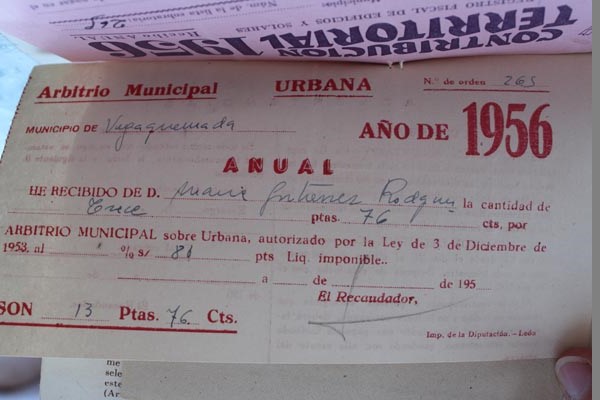 265
Núm. de la lista cobratoria
REGISTRO FISCAL DE EDIFICIOS Y SOLARES
Recibo ANUAL
CONTRIBUCIÓN
TERRITORIAL 1956
Arbitrio Municipal URBANA N.º de orden 265
MUNICIPIO DE Vegaquemada AÑO DE 1956
ANUAL
HE RECIBIDO DE D. María Gutiérrez Rodgez la cantidad de
Trece ptas. 76 cts, por
ARBITRIO MUNICIPAL sobre Urbana, autorizado por la Ley de 3 de Diciembre de
1953, al " % s/ 81 pts Liq. imponible..
a de de 195
El Recaudador,
SON 13 Ptas. 76 Cts.
Imp. de la Diputación.—León
me
sele
este
(Ar